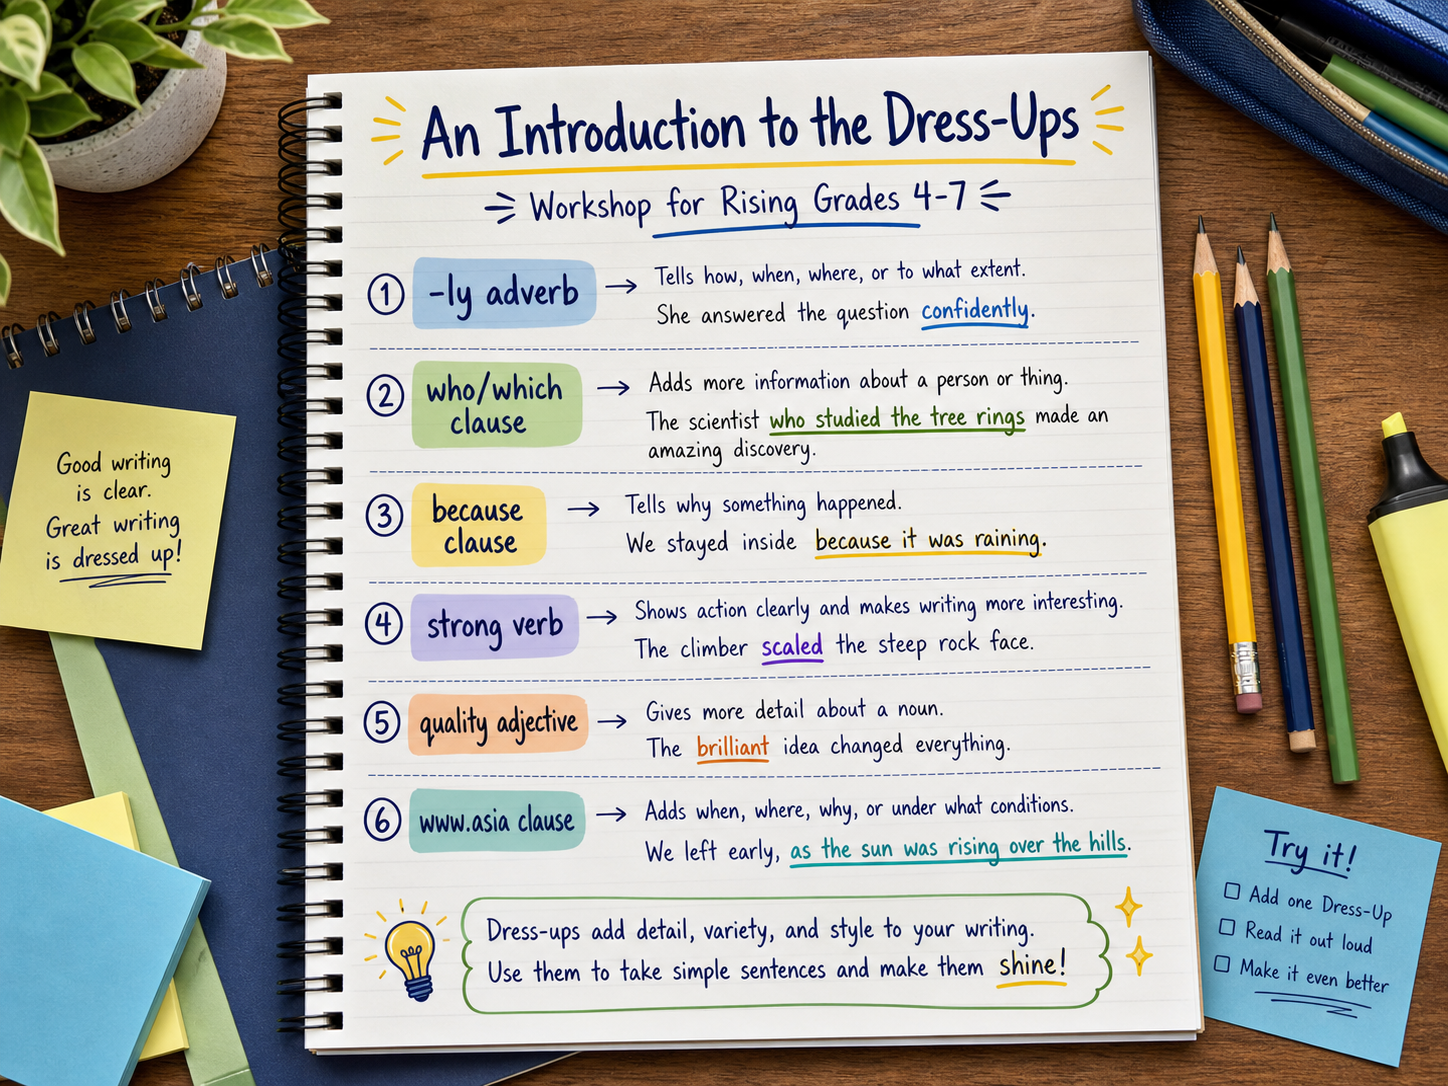 An Introduction to the Dress-Ups
Workshop for Rising Grades 4-7
1 -ly adverb → Tells how, when, where, or to what extent.
She answered the question confidently.
2 who/which clause → Adds more information about a person or thing.
The scientist who studied the tree rings made an
amazing discovery.
3 because clause → Tells why something happened.
We stayed inside because it was raining.
4 strong verb → Shows action clearly and makes writing more interesting.
The climber scaled the steep rock face.
5 quality adjective → Gives more detail about a noun.
The brilliant idea changed everything.
6 www.asia clause → Adds when, where, why, or under what conditions.
We left early, as the sun was rising over the hills.
Dress-ups add detail, variety, and style to your writing.
Use them to take simple sentences and make them shine!
Good writing
is clear.
Great writing
is dressed up!
Try it!
Add one Dress-Up
Read it out loud
Make it even better